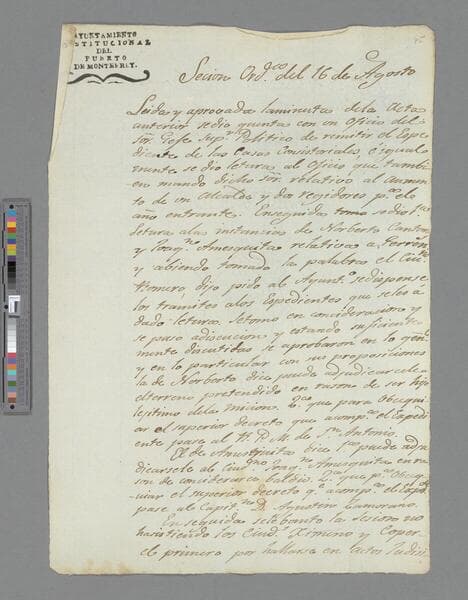 AYUNTAMIENTO
STITUCIONAL
DEL
PUERTO
DE MONTERREY.
Secion Ord.ᶜᵒ del 16 de Agosto
Leida y aprovada la minuta de la Acta
anterior se dio quenta con un oficio del
Sõr. Gefe Sup.ᵒʳ Politico de remitir el Espe
diente de las Casas Consistoriales, é igual
mente se dio letura al Oficio que tambi
en mando dicho Sõr. relativo al aumen
to de un Alcalde y dos regidores p.ᵃ el
año entrante. Enseguida se dio
letura a las instancias de Norberto Cantua
y Joaq.ⁿ Amesquita relativas a terren
y abiendo tomado la palabra el Ciu
Romero, dijo pido al Ayunt.ᵒ se dispense
los tramites a los Expedientes que se les á
dado letura. Se tomo en consideracion y
se paso a discucion y estando suficiente
mente discutidas se aprobaron en lo gen
y en lo particular con sus proposiciones
la de Norberto dice puede adjudicarcele
el terreno pretendido en razon de ser hijo
legitimo de la micion. 2.ᵃ que para obsequi
ar el superior decreto que acomp.ᵃ el Expedi
ente pase al R. P. M. de S.ⁿ Antonio.
El de Amesquita dice 1.ᵃ puede adju
dicarsele al Ciud.ⁿᵒ Joaq.ⁿ Amesquita en ra
son de conciderarce baldio. 2.ᵃ que p.ᵃ obse
quiar el superior decreto q.ᵉ acomp.ᵃ el Esp
pase al Capit.ⁿ D. Agustin Zamorano.
En seguida se lebanto la sesion no
hasistiendo los Ciud.ˢ Ximeno y Coper
el primero por hallarse en actos Judici